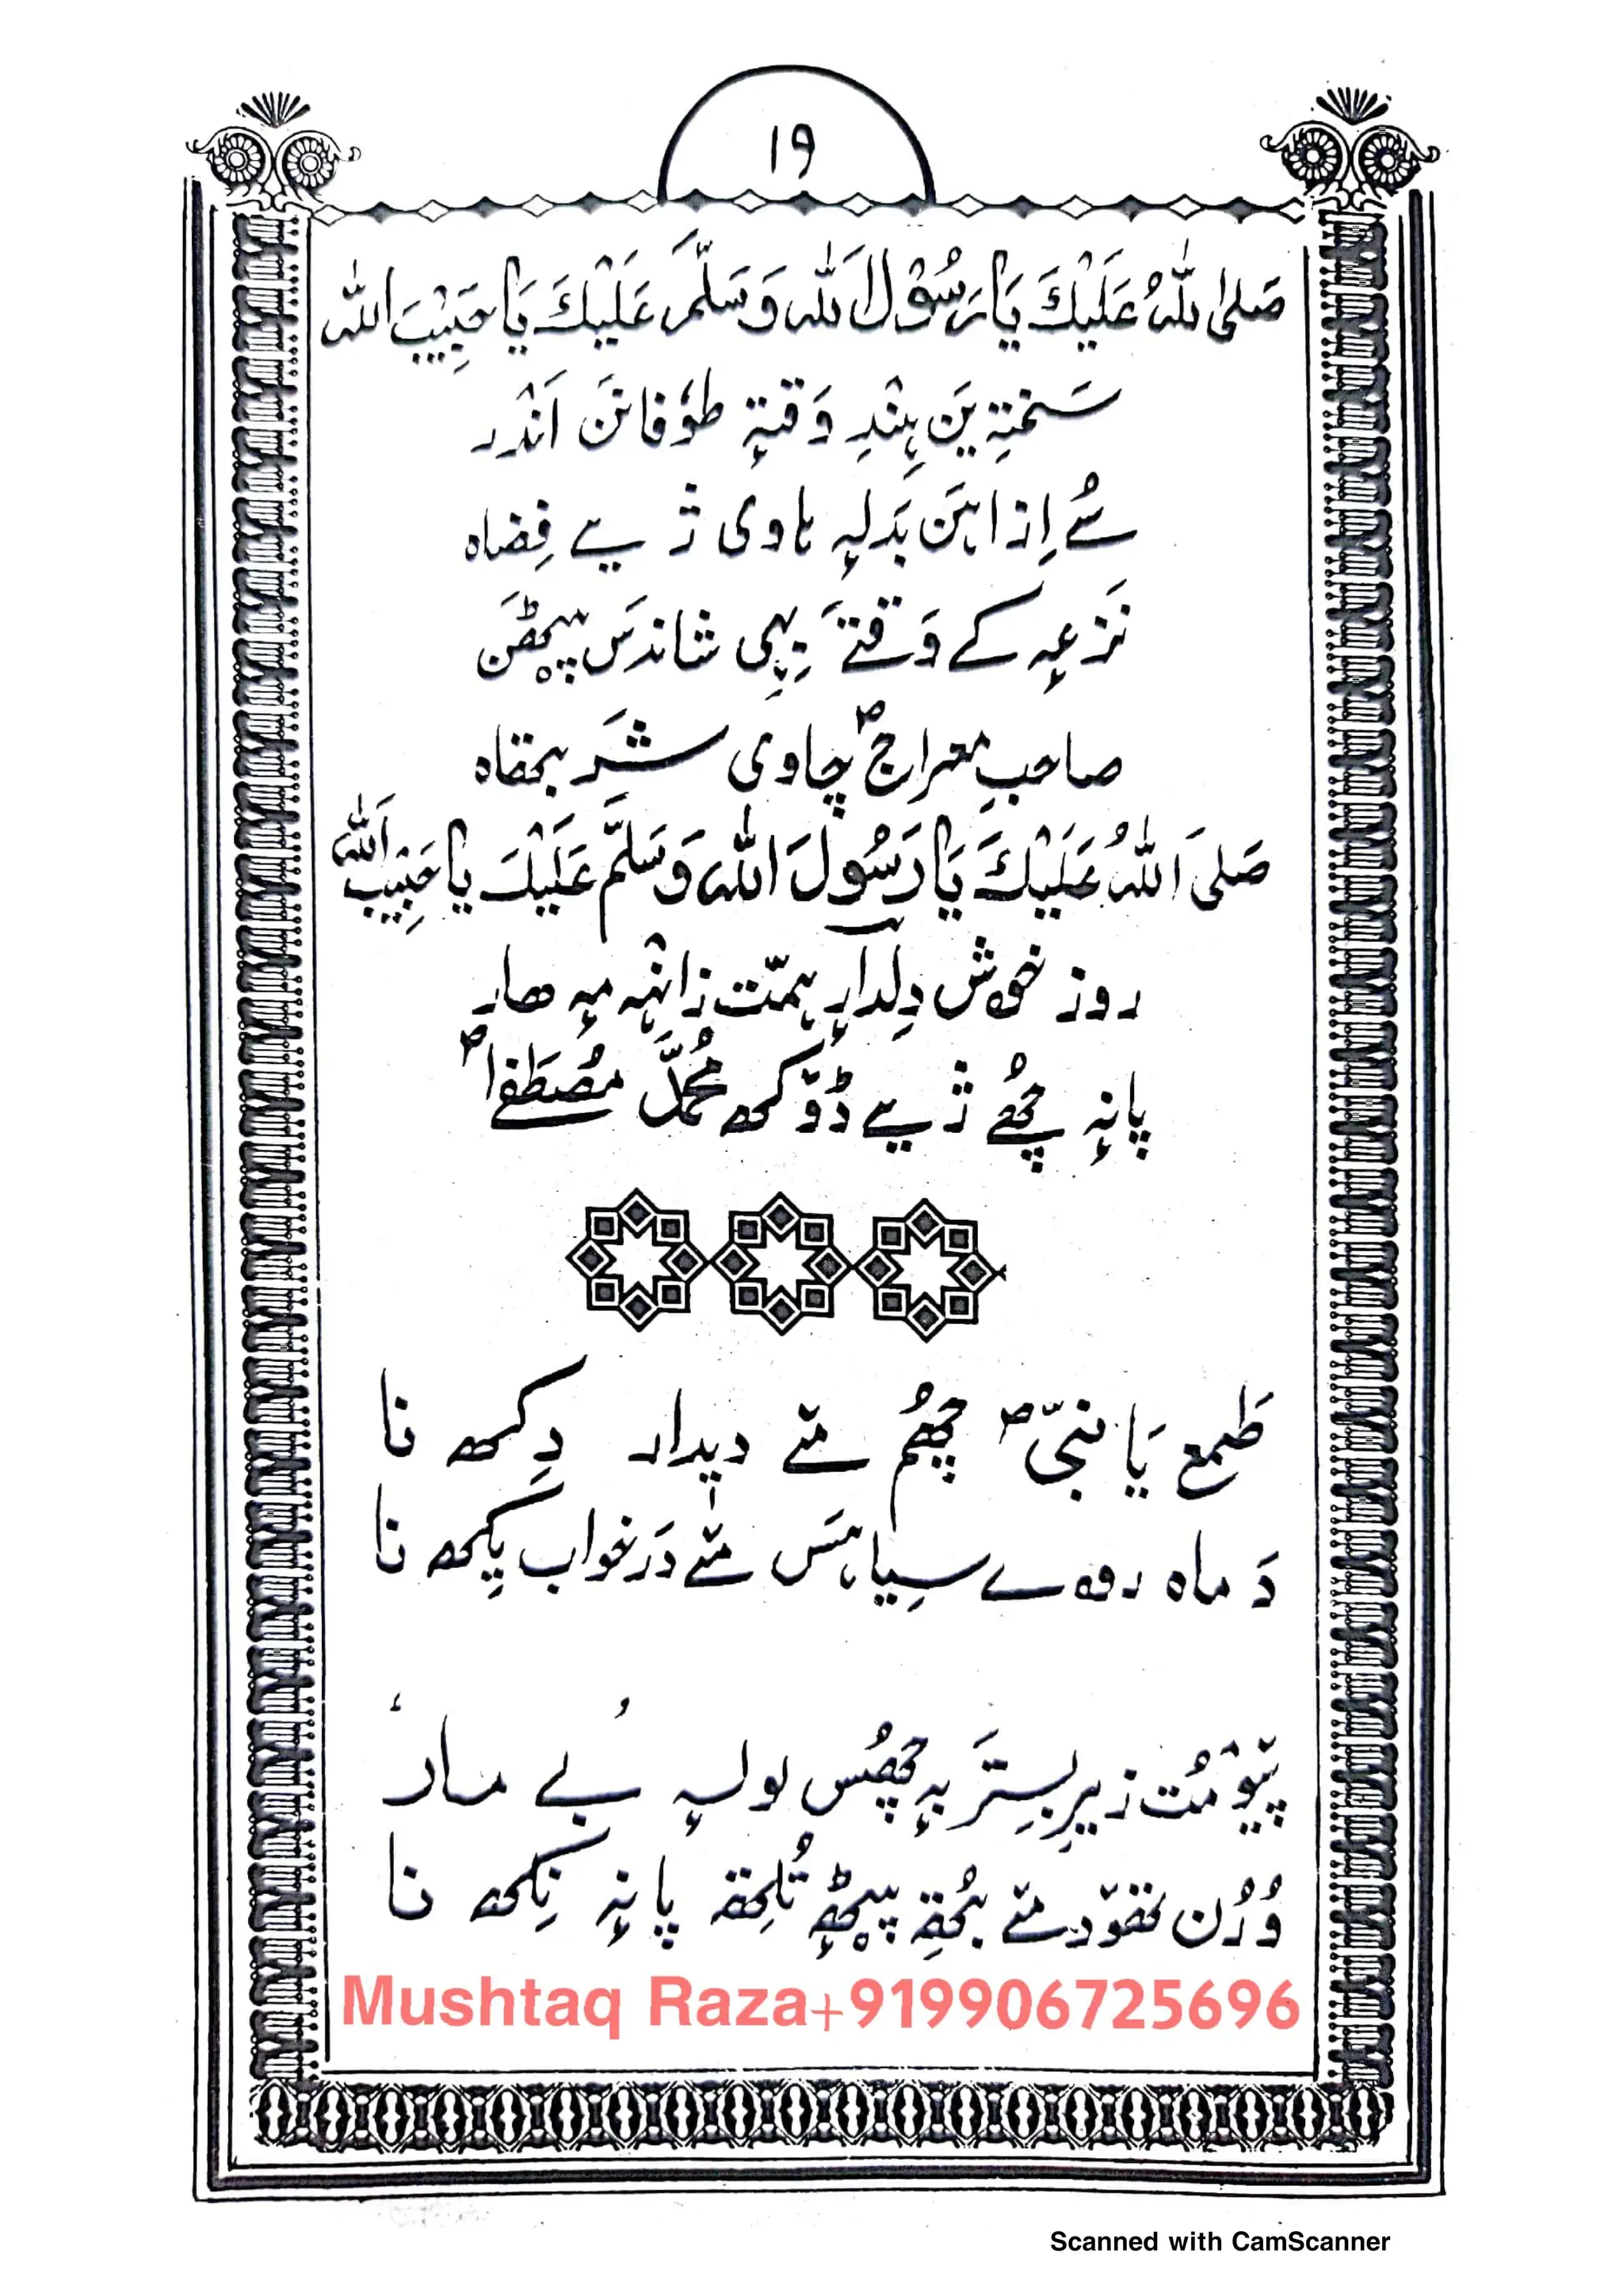 ۱۹
صَلی اللہُ عَلَیْکَ یَا رَسُوْلَ اللہ وَسَلَّمَ عَلَیْکَ یَا حَبِیْبَ اللہ
سَختِہ یَن ہِنٛدِ وَقتہٕ طوٗفانَن اَنٛدَر
سُے اِزا ہَن بَدلہٕ ناوی ژےٚ فِضاہ
نَزعہٕ کے وَقتَے یِہی شاندَس پیٚٹھَن
صاحبِ معراجؐ چاوی شَربتھاہ
صَلی اَللہُ عَلَیْکَ یَا رَسُولَ اللہ وَسَلَّمَ عَلَیْکَ یَا حَبِیْبَ اللہ
روز خوش دِلدارٕ ہمّت زانٛہہ مہٕ ھار
پانہٕ چھُے ژےٚ ڈوٚکھ مُحَمَّد مُصطَفاؐ
طَمع یَا نبیؐ چھُم مےٚ دیدار دِکھ نا
دَ ماہ روے سِیاہَس مےٚ دَر خواب یِکھ نا
پیوٚمُت زیرِ بِسترَ بہٕ چھُس لولہٕ بُے مارٕ
وُرُن تھوٚد مےٚ بُتھِ پیٚٹھہٕ تُلِتھ پانہٕ نِکھ نا
Mushtaq Raza+919906725696
Scanned with CamScanner